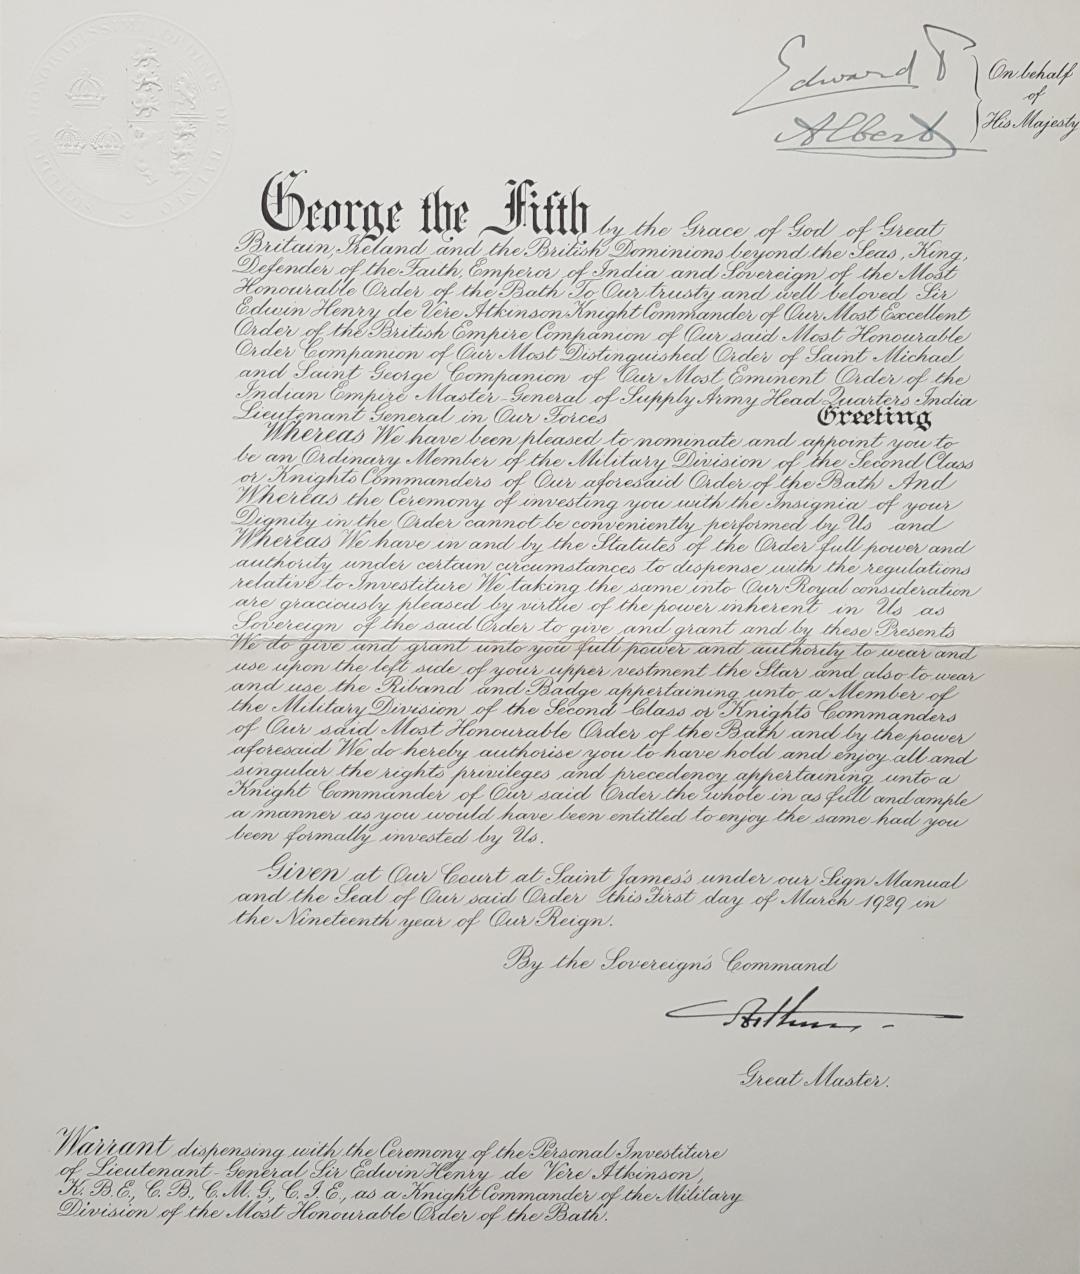 Edward P
Albert
On behalf
of
His Majesty
George the Fifth by the Grace of God of Great
Britain, Ireland and the British Dominions beyond the Seas, King,
Defender of the Faith, Emperor of India and Sovereign of the Most
Honourable Order of the Bath To Our trusty and well beloved Sir
Edwin Henry de Vere Atkinson Knight Commander of Our Most Excellent
Order of the British Empire Companion of Our said Most Honourable
Order Companion of Our Most Distinguished Order of Saint Michael
and Saint George Companion of Our Most Eminent Order of the
Indian Empire Master-General of Supply Army Head Quarters India
Lieutenant General in Our Forces Greeting
Whereas We have been pleased to nominate and appoint you to
be an Ordinary Member of the Military Division of the Second Class
or Knights Commanders of Our aforesaid Order of the Bath And
Whereas the Ceremony of investing you with the Insignia of your
Dignity in the Order cannot be conveniently performed by Us and
Whereas We have in and by the Statutes of the Order full power and
authority under certain circumstances to dispense with the regulations
relative to Investiture We taking the same into Our Royal consideration
are graciously pleased by virtue of the power inherent in Us as
Sovereign of the said Order to give and grant and by these Presents
We do give and grant unto you full power and authority to wear and
use upon the left side of your upper vestment the Star and also to wear
and use the Riband and Badge appertaining unto a Member of
the Military Division of the Second Class or Knights Commanders
of Our said Most Honourable Order of the Bath and by the power
aforesaid We do hereby authorise you to have hold and enjoy all and
singular the rights privileges and precedency appertaining unto a
Knight Commander of Our said Order the whole in as full and ample
a manner as you would have been entitled to enjoy the same had you
been formally invested by Us.
Given at Our Court at Saint James's under our Sign Manual
and the Seal of Our said Order this First day of March 1929 in
the Nineteenth year of Our Reign.
By the Sovereign's Command
Arthur
Great Master.
Warrant dispensing with the Ceremony of the Personal Investiture
of Lieutenant-General Sir Edwin Henry de Vere Atkinson,
K.B.E., C.B., C.M.G., C.I.E., as a Knight Commander of the Military
Division of the Most Honourable Order of the Bath.